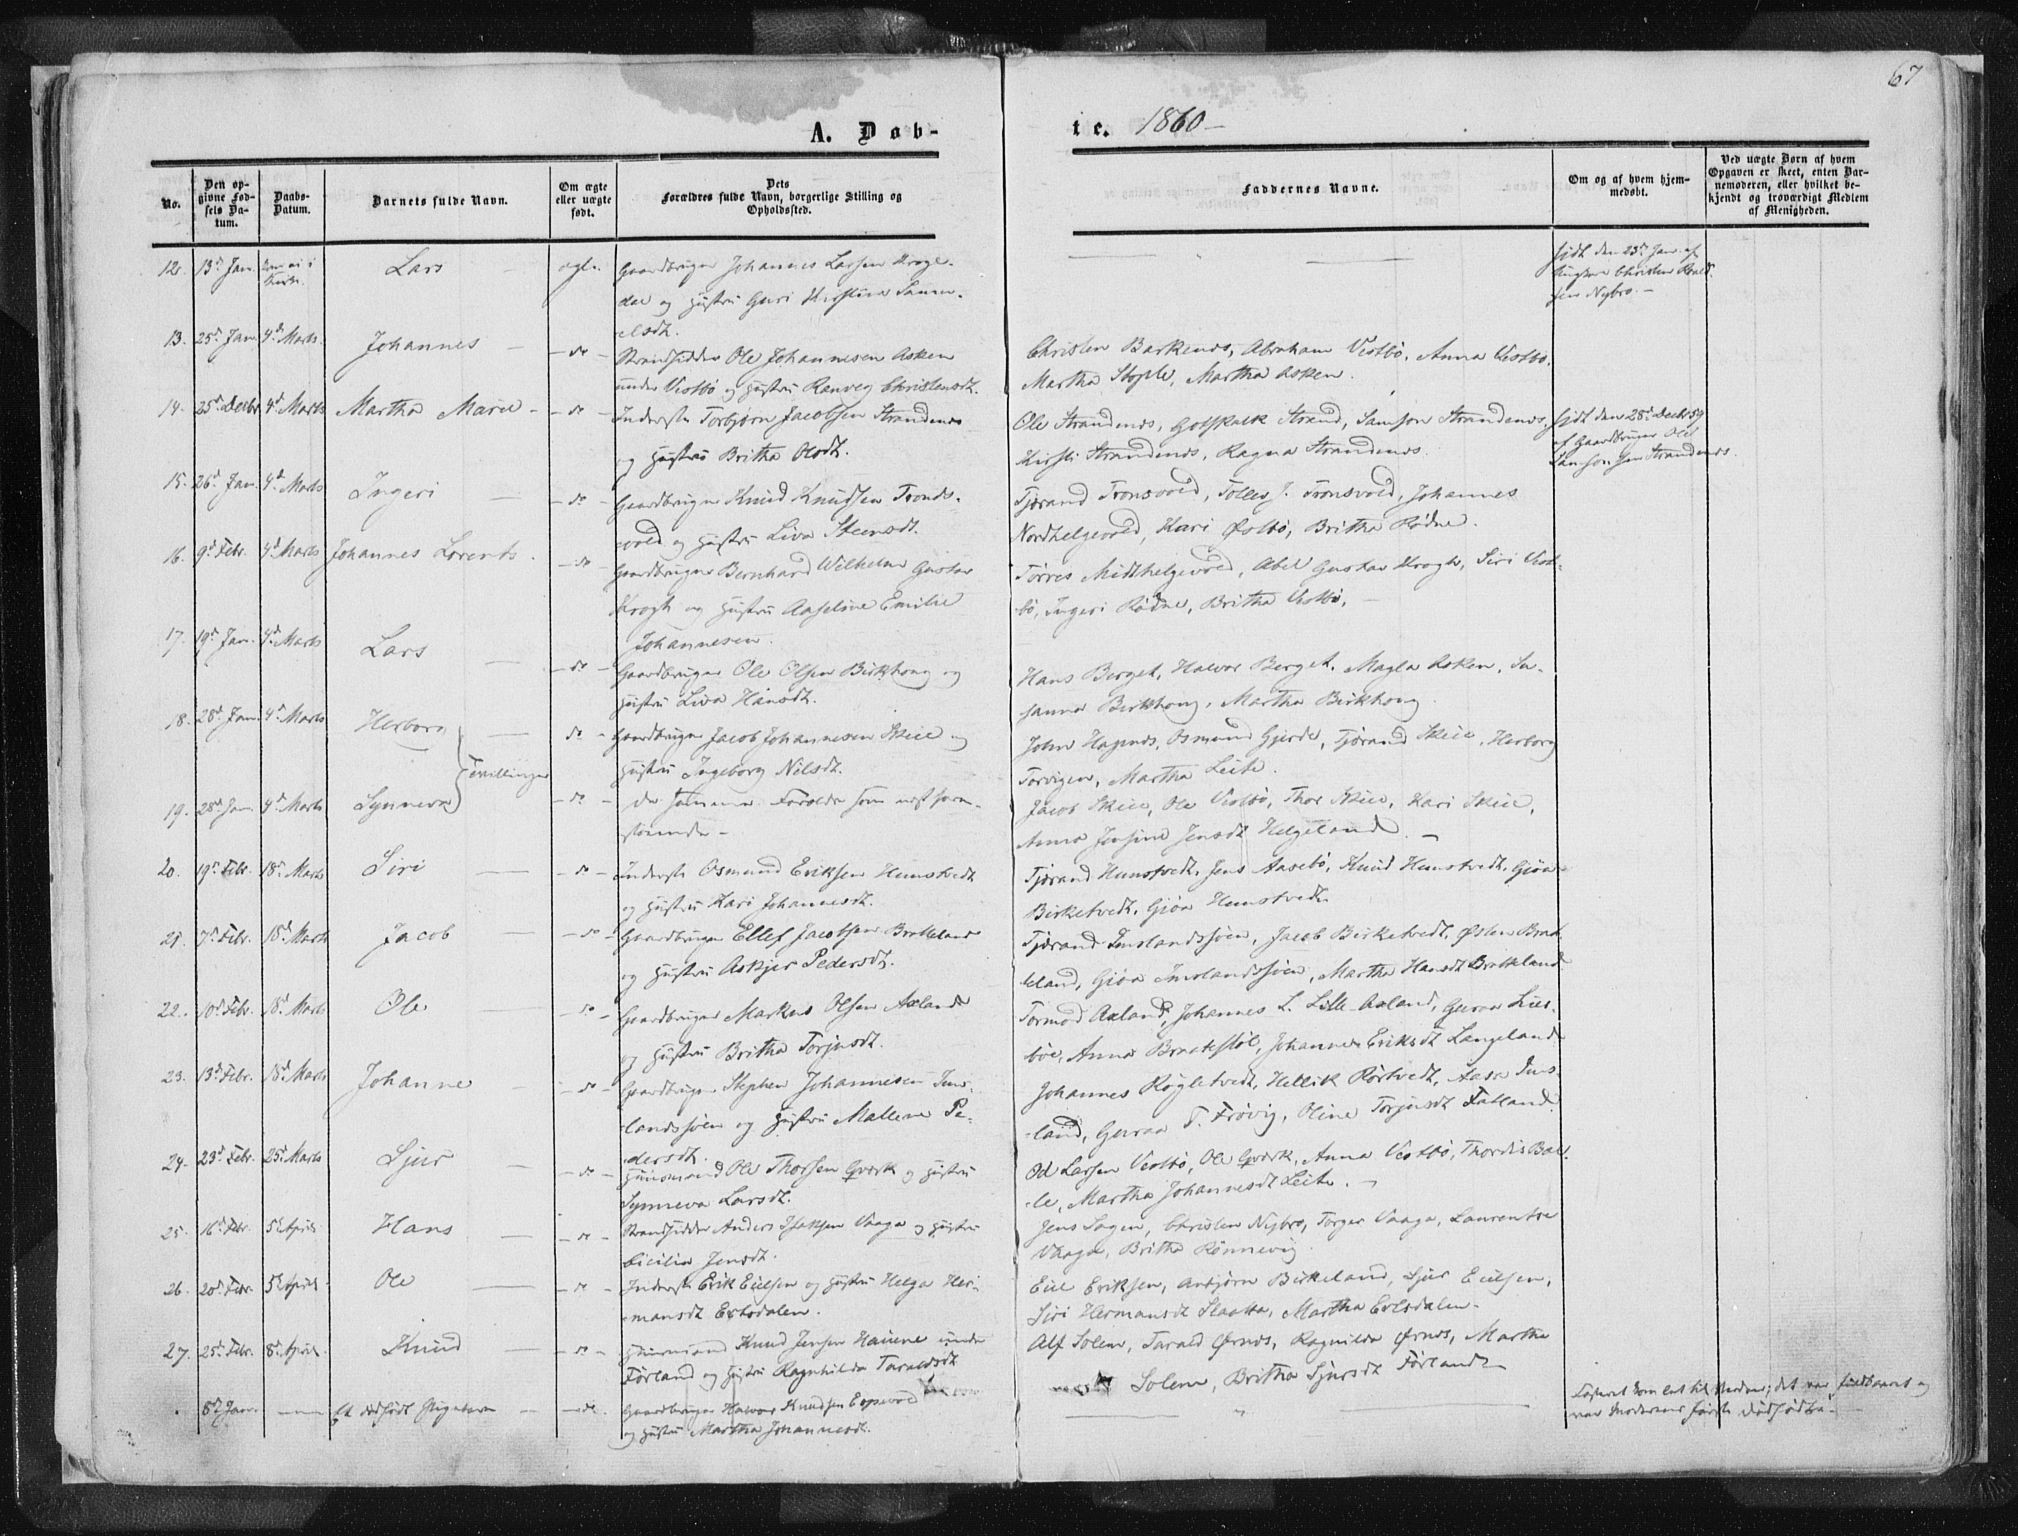 67
A. Døb-
te. 1860 –
No.
Den op-
givne Fød-
sels Da-
tum.
Daabs-
Datum.
Barnets fulde Navn.
Om ægte
eller uægte
født.
Dets
Forældres fulde Navn, borgerlige Stilling og
Opholdssted.
Faddernes Navne.
Om og af hvem hjem-
medøbt.
Ved uægte Børn af hvem
Opgaven er skeet, enten Bar-
nemoderen, eller hvilket be-
kjendt og troværdigt Medlem
af Menigheden.
12. 13d Jan. Lars ægte. Gaardbruger Johannes Larsen Kroge-
dal og Hustru Guri Kirstine Samu-
elsdt.
hjdt den 23d Jan. af
Christen Roald-
sen Nybro. –
13. 25d Jan. 4d Marts. Johannes – do – Strandsidder Ole Johannesen Asken
under Vestbø og Hustru Ranveg Christensdt.
Christen Barkenes, Abraham Vestbø, Anna Vestbø,
Martha Stople, Martha Asken.
14. 25d Decbr 4d Marts Martha Marie – – do – Inderste Torbjørn Jacobsen Strandenes
og Hustru Britha Olsdt.
Ole Strandenes, Gotskalk Strand, Samson Strandenes,
Kirsti Strandenes, Ragna Strandenes.
hjdt den 28d Decbr 59
af Gaardbruger Ole
Samsonsen Strandenes.
15. 26d Jan. 4d Marts Ingeri – do – Gaardbruger Knud Knudsen Tronds-
vold og Hustru Liva Steensdt.
Tjærand Tronsvold, Tolles J. Tronsvold, Johannes
Nordhelgevold, Kari Østbø, Britha Rødne.
16. 9d Febr. 4d Marts Johannes Lorents. – do – Gaardbruger Bernhard Wilhelm Gustav
Krogh og Hustru Aaseline Emilie
Johannesen.
Torres Midthelgevold, Abel Gustav Krogh, Siri Vest-
bø, Ingeri Rødne, Britha Vestbø. –
17. 19d Jan. 4d Marts Lars – do – Gaardbruger Ole Olsen Birkhoug og
Hustru Liva Hansdt.
Hans Berget, Halvor Berget, Magla Asken, Su-
sanna Birkhoug, Martha Birkhoug.
18. 28d Jan. 4d Marts Herborg – do – Gaardbruger Jacob Johannesen Skeie og
Hustru Ingeborg Nilsdt.
John Hagenes, Osmund Gjerde, Tjærand Skeie, Herborg
Torvigen, Martha Leite.
Tvillinger
19. 28d Jan. 4d Marts Synneva – do – De samme Forældre som næstforan-
staaende –
Jacob Skeie, Ole Vestbø, Thor Skeie, Kari Skeie,
Anna Jensine Jensdt Helgeland. –
20. 19d Febr. 18d Marts Siri – do – Inderste Osmund Eriksen Hunstvedt
og Hustru Kari Johannesdt.
Tjærand Hunstvedt, Jens Aasebø, Knud Hunstvedt, Gjøa
Birketvedt, Gjøa Hunstvedt.
21. 7d Febr. 18d Marts Jacob – do – Gaardbruger Ellef Jacobsen Bratteland
og Hustru Askjer Pedersdt.
Tjærand Imslandssjøen, Jacob Birketvedt, Østen Brat-
teland, Gjøa Imslandssjøen, Martha Hansdt Bratteland
22. 10d Febr. 18d Marts Ole – do – Gaardbruger Markus Olsen Axland
og Hustru Britha Torjusdt.
Tormod Axland, Johannes L. Lille-Axland, Guroa Lies-
bøe, Anna Brakestøl, Johanne Eriksdt Langeland
23. 13d Febr. 18d Marts Johanne – do – Gaardbruger Stephen Johannesen Ims-
landssjøen og Hustru Mallene Pe-
dersdt.
Johannes Røgletvedt, Hellik Rørtvedt, Aase Ims-
land, Guroa T. Frøvig, Oline Torjusdt Fatland.
24. 23d Febr. 25d Marts Sjur – do – Huusmand Ole Thorsen Qværk og Hustru
Synneva Larsdt.
Od Larsen Vestbø, Ole Qværk, Anna Vestbø, Thordis Bal-
le, Martha Johannesdt Leite. –
25. 16d Febr. 5d April Hans – do – Strandsidder Anders Isaksen Vaaga og Hustru
Cicilia Jensdt.
Jens Sagen, Christen Nybro, Torger Vaaga, Laurentse
Vaaga, Britha Rønnevig.
26. 20d Febr. 5d April Ole – do – Inderste Erik Eielsen og Hustru Helga Her-
mansdt Ertsdalen.
Eiel Eriksen, Anbjørn Birkeland, Sjur Eielsen,
Siri Hermansdt Slaatta, Martha Ertsdalen.
27. 25d Febr. 8d April Knud – do – Huusmand Knud Jensen Hauene under
Førland og Hustru Ragnhilda Taraldsdt
Alf Solem, Tarald Ørnes, Ragnilda Ørnes, Martha
Solem, Britha Sjursdt Førland –
8d Jan. Et dødfødt Pigebarn – do. Gaardbruger Halvor Knudsen Espevold
og Hustru Martha Johannesdt.
det var fuldbaaret og
var Moderens første dødfødte. –